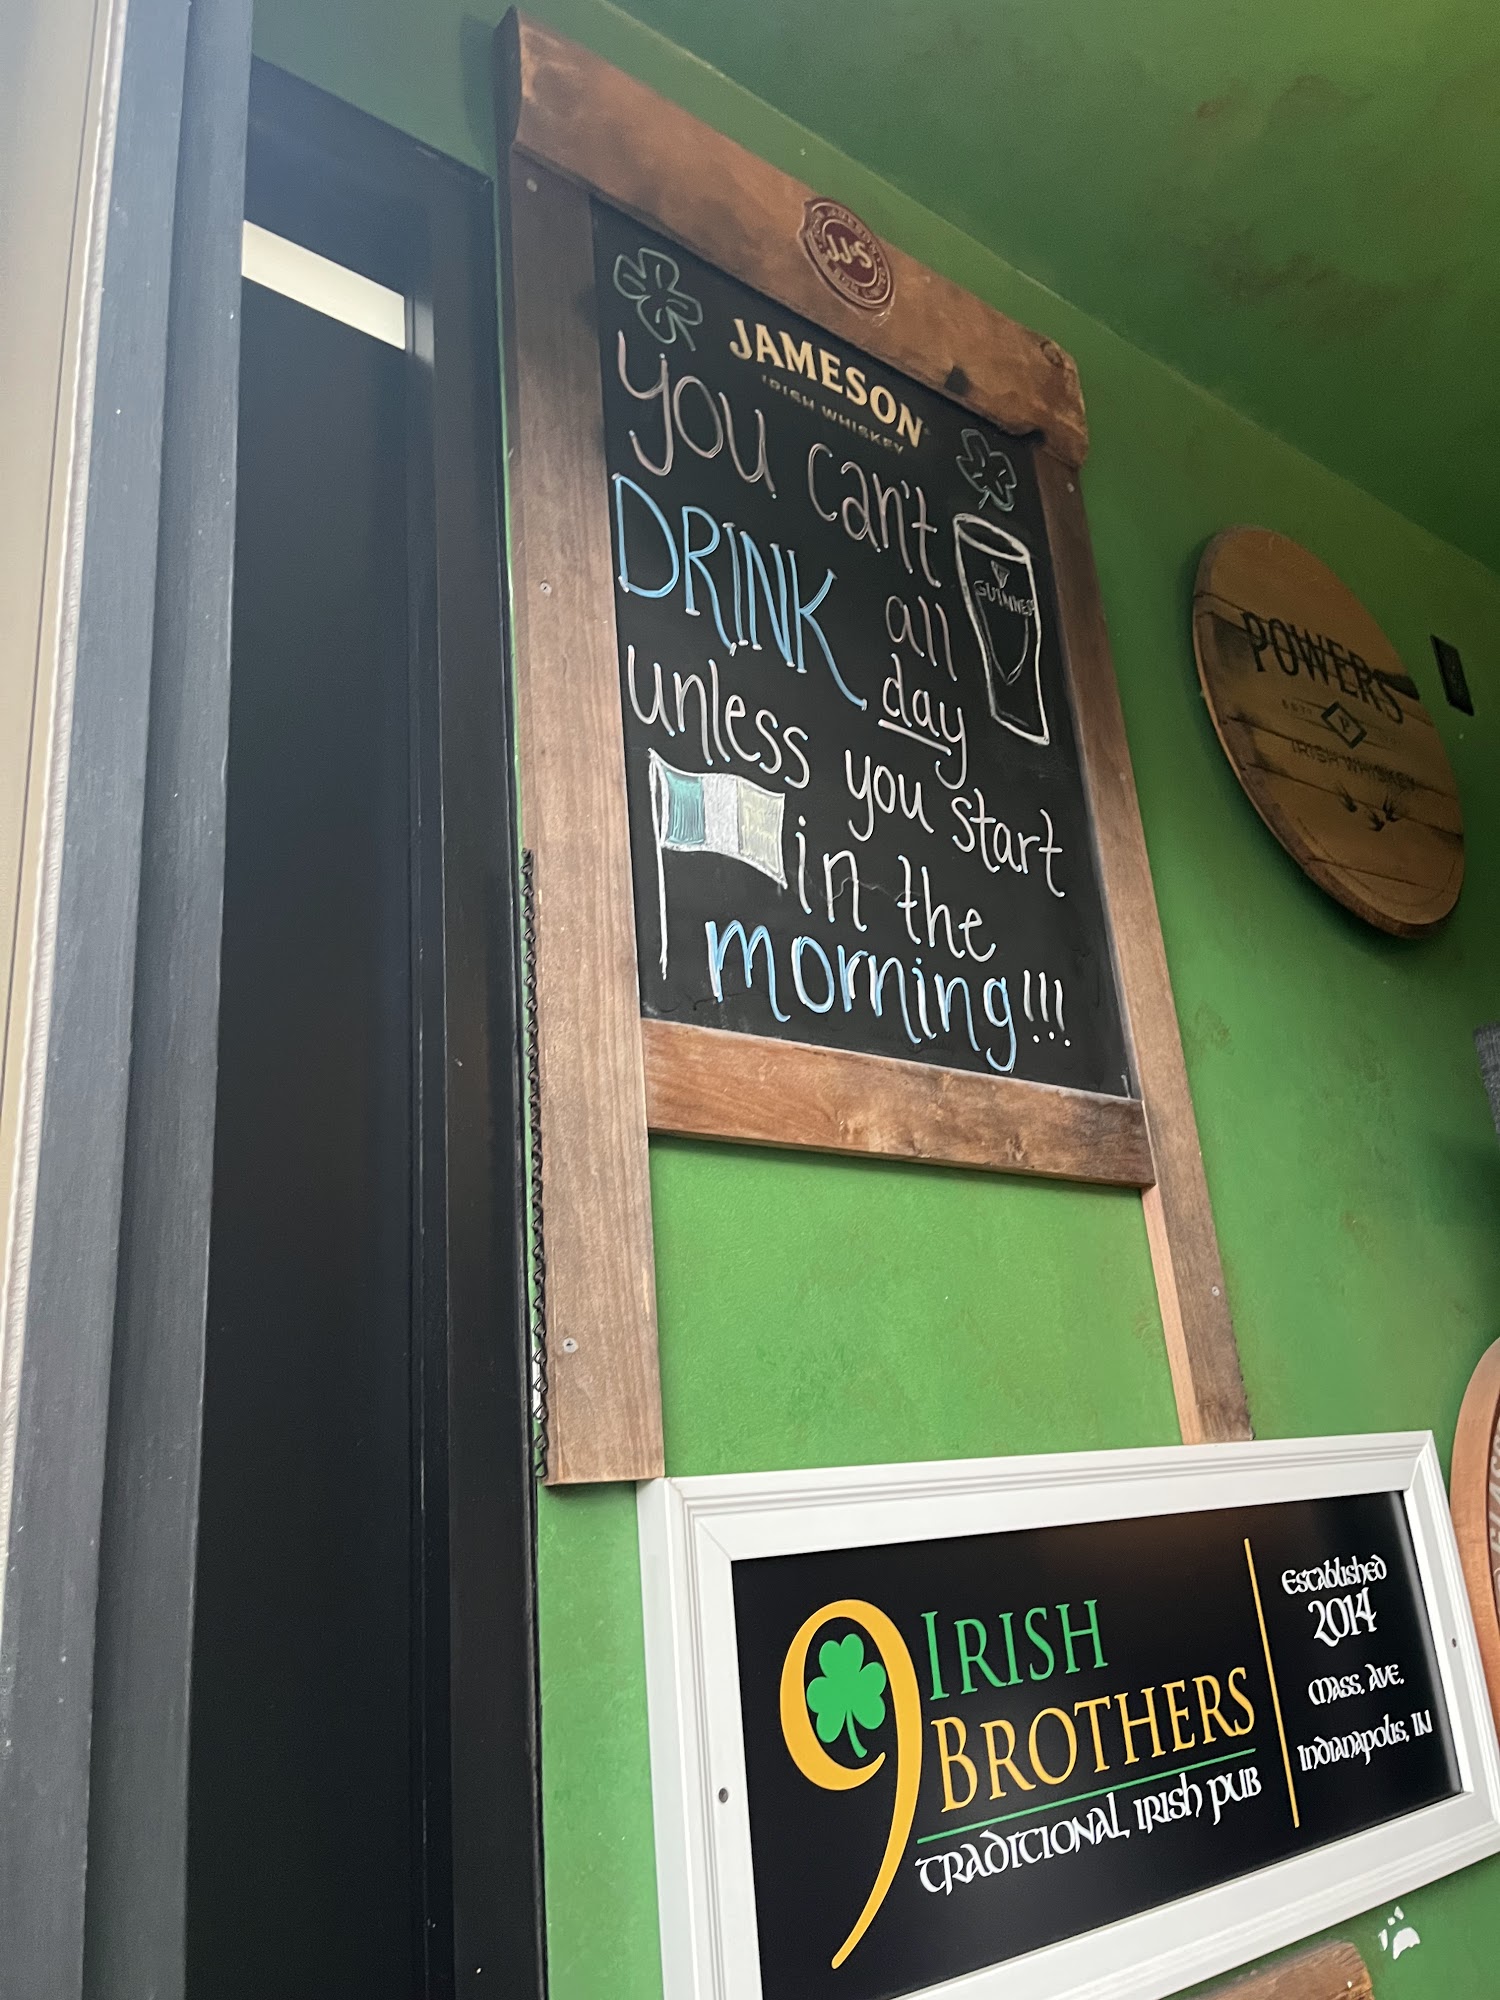 JJ&S
JAMESON
IRISH WHISKEY
you can't
DRINK all
day
unless you start
in the
morning!!!
GUINNESS
POWERS
ESTD
P
IRISH WHISKEY
9 IRISH
BROTHERS
TRADITIONAL IRISH PUB
ESTABLISHED
2014
MASS. AVE.
INDIANAPOLIS, IN